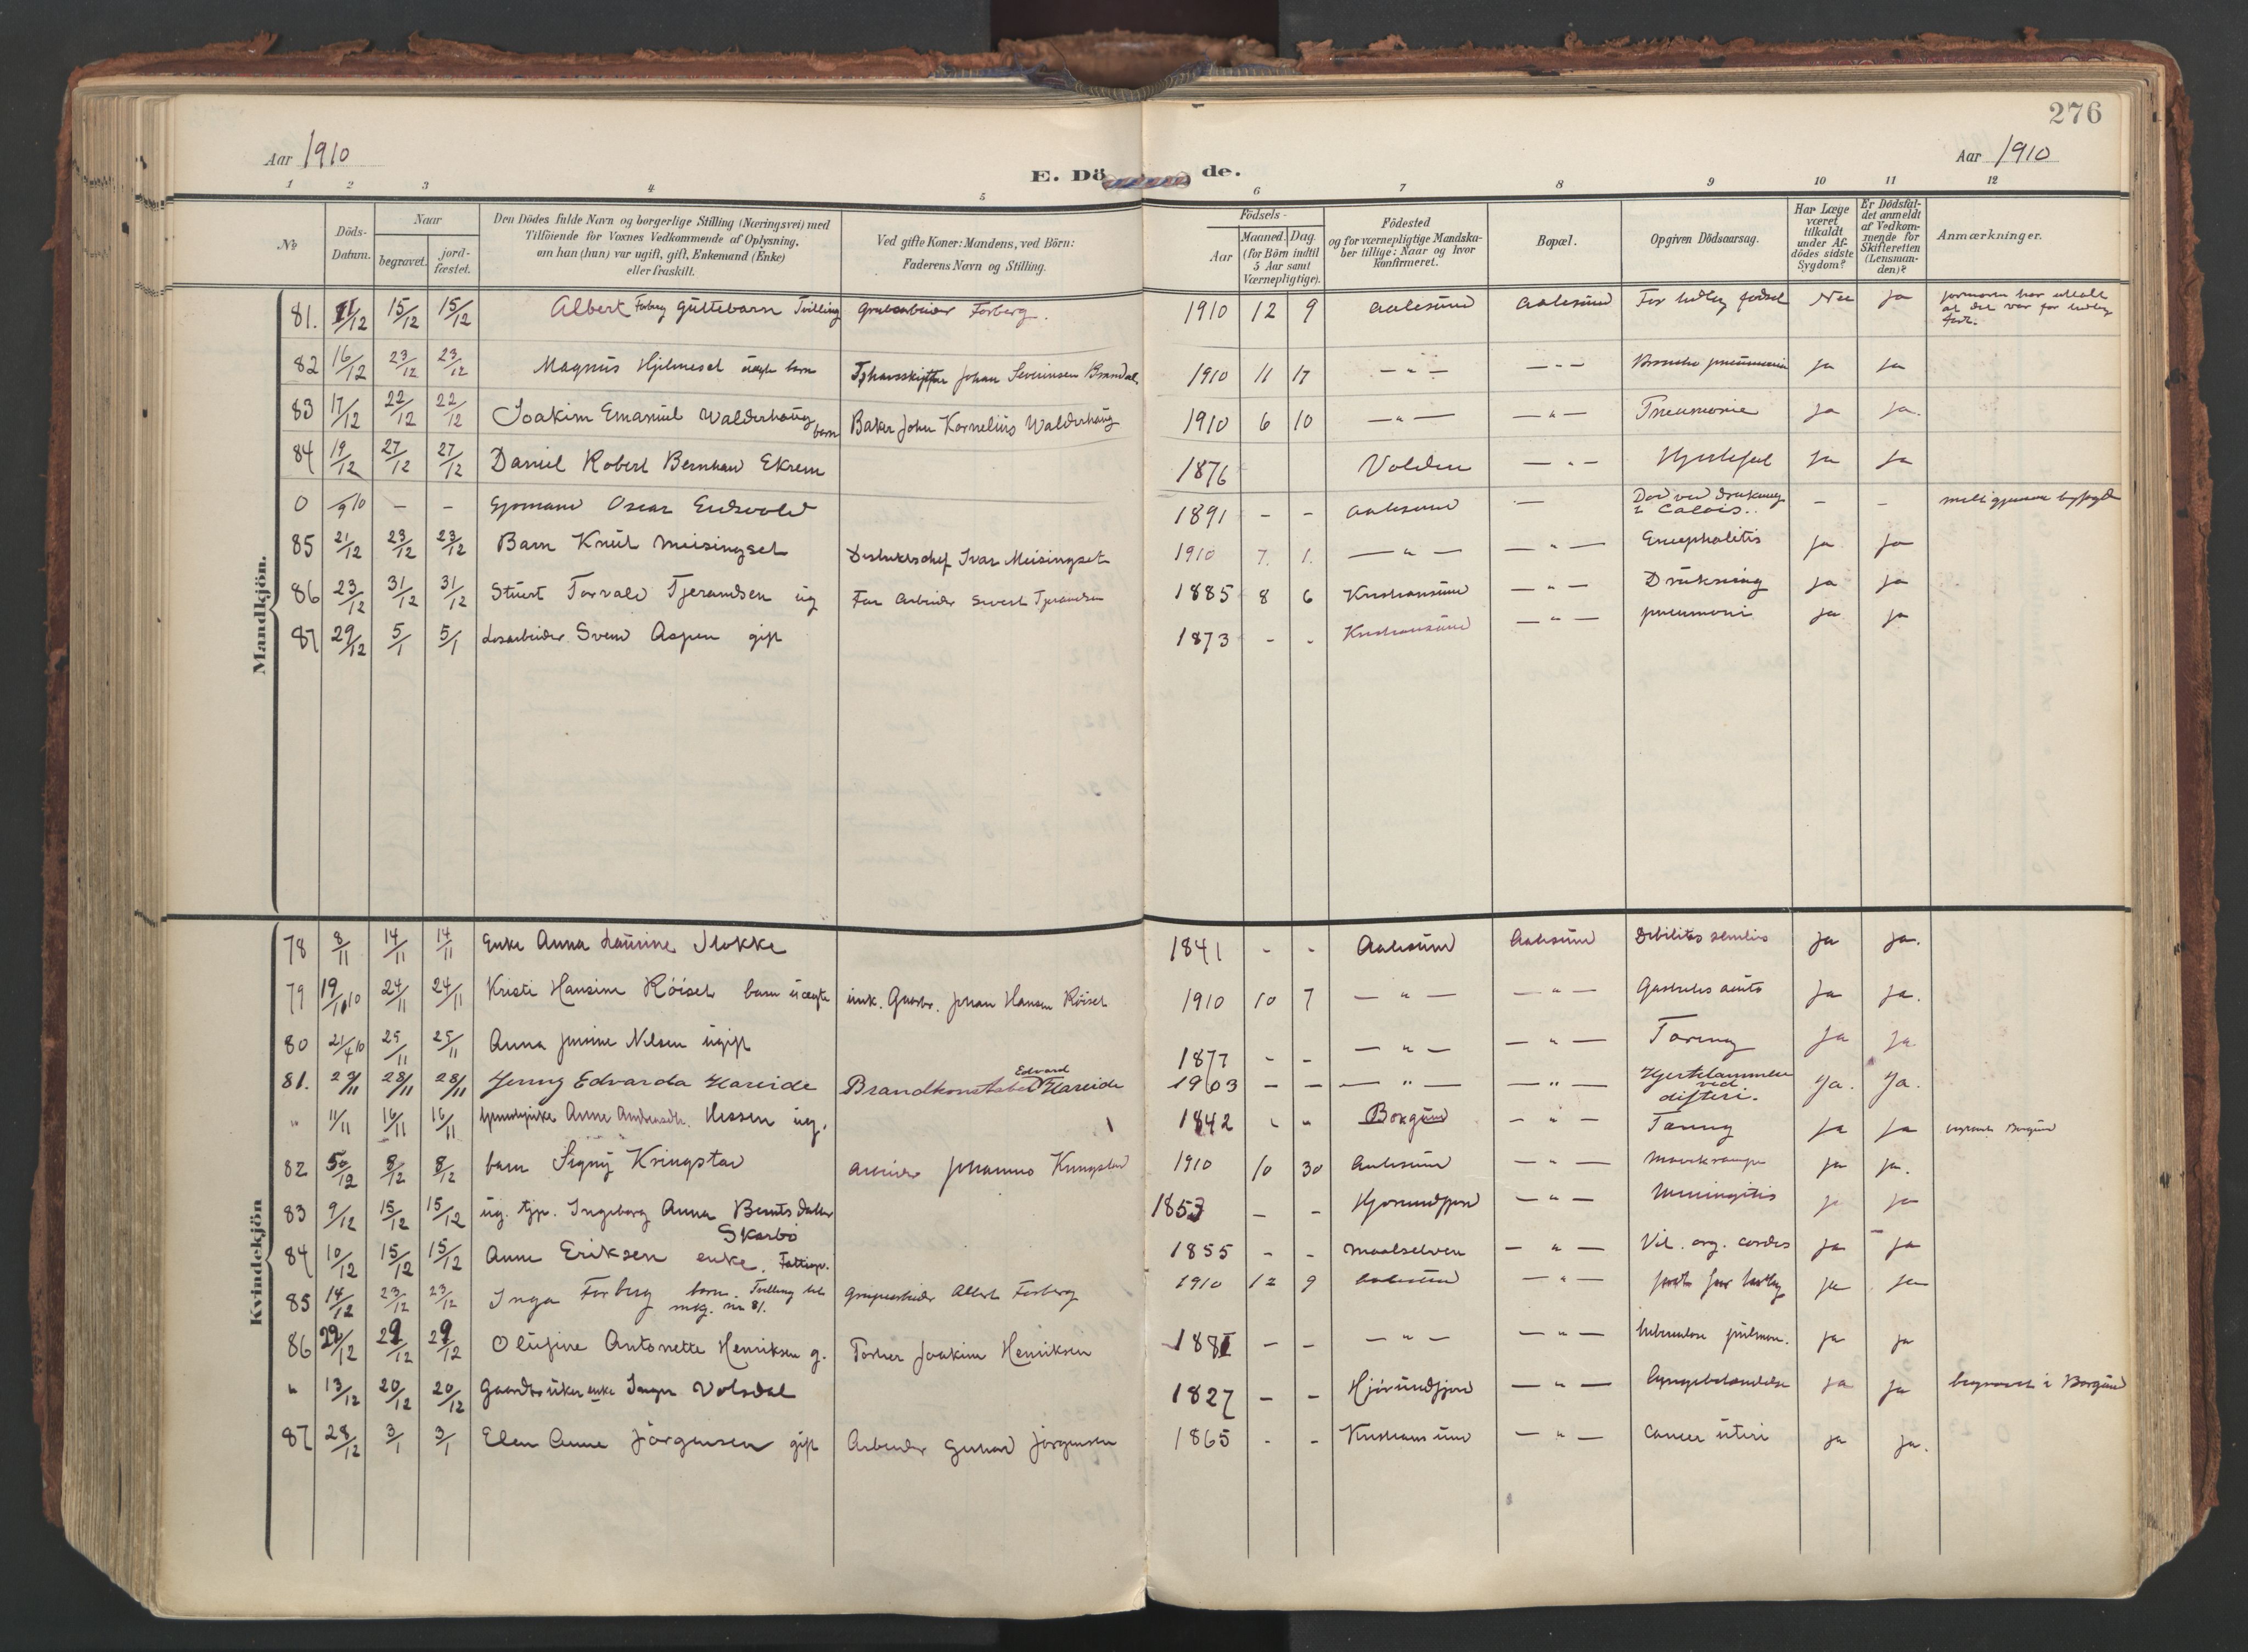 276
Aar 1910
E. Dö de.
Aar 1910
1 2 3 4 5 6 7 8 9 10 11 12
No
Döds-Datum.
Naar
begravet.
jord-fæstet.
Den Dödes fulde Navn og borgerlige Stilling (Næringsvei) med
Tilföiende for Voxnes Vedkommende af Oplysning,
om han (hun) var ugift, gift, Enkemand (Enke)
eller fraskilt.
Ved gifte Koner: Mandens, ved Börn:
Faderens Navn og Stilling.
Födsels-
Aar
Maaned.
Dag
(for Börn indtil
5 Aar samt
Værnepligtige).
Födested
og for værnepligtige Mandska-
ber tillige: Naar og hvor
konfirmeret.
Bopæl.
Opgiven Dödsaarsag.
Har Læge
været
tilkaldt
under Af-
dödes sidste
Sygdom?
Er Dödsfal-
det anmeldt
af Vedkom-
mende for
Skifteretten
(Lensman-
den)?
Anmærkninger.
Mandkjön.
81. 11/12 15/12 15/12 Albert Forberg Guttebarn Tvilling Forberg. 1910 12 9 Aalesund Aalesund For tidlig fødsel Nei ja
at det var for tidlig
født.
82 16/12 23/12 23/12 Magnus uægte barn Johan Severinsen Brandal 1910 11 17 — " — — " — Broncho pneumonia ja ja
83 17/12 22/12 22/12 Joakim Emanuel Walderhaug barn Baker John Kornelius Walderhaug 1910 6 10 — " — — " — Pneumonie ja ja.
84 19/12 27/12 27/12 Daniel Robert Bernhard Ekrem 1876 Volden — " — Hjertefeil ja ja
0 /9 10 - - Oscar Eidsvold 1891 - - Aalesund — Død ved drukning
i Calais. - -
85 21/12 23/12 23/12 Barn Knut Meisingset Ivar Meisingset 1910 7. 1. — " — — " — Encephalitis ja ja
86 23/12 31/12 31/12 Torvald Tjerandsen ug Far Arbeider Sivert Tjerandsen 1885 8 6 Kristiansund — " — Drukning ja ja
87 29/12 5/1 5/1 Løsarbeider Svend Aspen gift 1873 - - Kristiansund — " — pneumoni ja ja
Kvindekjön
78 8/11 14/11 14/11 Enke Anna Laurine Slokke 1841 - - Aalesund Aalesund Debilitas senilis ja ja.
79 19/10 10 24/11 24/11 Kristi Hansine Röiset barn uægte Johan Hansen Röiset 1910 10 7 — " — — " — ja ja.
80 21/4 10 25/11 25/11 Anna Nilsen ugift 1877 - - — " — — " — Tæring ja ja
81. 23/11 28/11 28/11 Jenny Edvarda Hareide Brandkonstabel Edvard Hareide 1903 — — — " — — " — Hjertelammelse
ved
difteri. Ja. Ja.
" 11/11 16/11 16/11 Anne Hessen ug. 1842 " " Borgund - " - Tæring ja ja Borgund
82 8/12 8/12 barn Signy Kringstad Arbeider Johannes Kringstad 1910 10 30 Aalesund — " — ja ja.
83 9/12 15/12 15/12 ug. tjp. Ingeborg Anna Berntsdatter
Skarbö 1853 — - Hjørundfjord — " — Meningitis ja ja
84 10/12 15/12 15/12 Anne Eriksen enke. Fattigv. 1855 - - Maalselven — " — Vit. org. cordis ja ja
85 14/12 23/12 23/12 Inga Forberg barn. Tvilling til
mkj. nr 81. Albert Forberg 1910 12 9 Aalesund — " — født for tidlig ja ja
86 22/12 29/12 29/12 Olufine Antonette Henriksen g. Joakim Henriksen 1881 — — — " — — " — tuberculose pulmon. ja ja
" 13/12 20/12 20/12 Gaardbruker enke Inger Volsdal 1827 — - Hjörundfjord — " — Lungebetændelse ja ja begravet i Borgund
87 28/12 3/1 3/1 Elen Anne Jörgensen gift Arbeider Gunard Jörgensen 1865 - - Kristiansund — " — Cancer uteri ja ja.